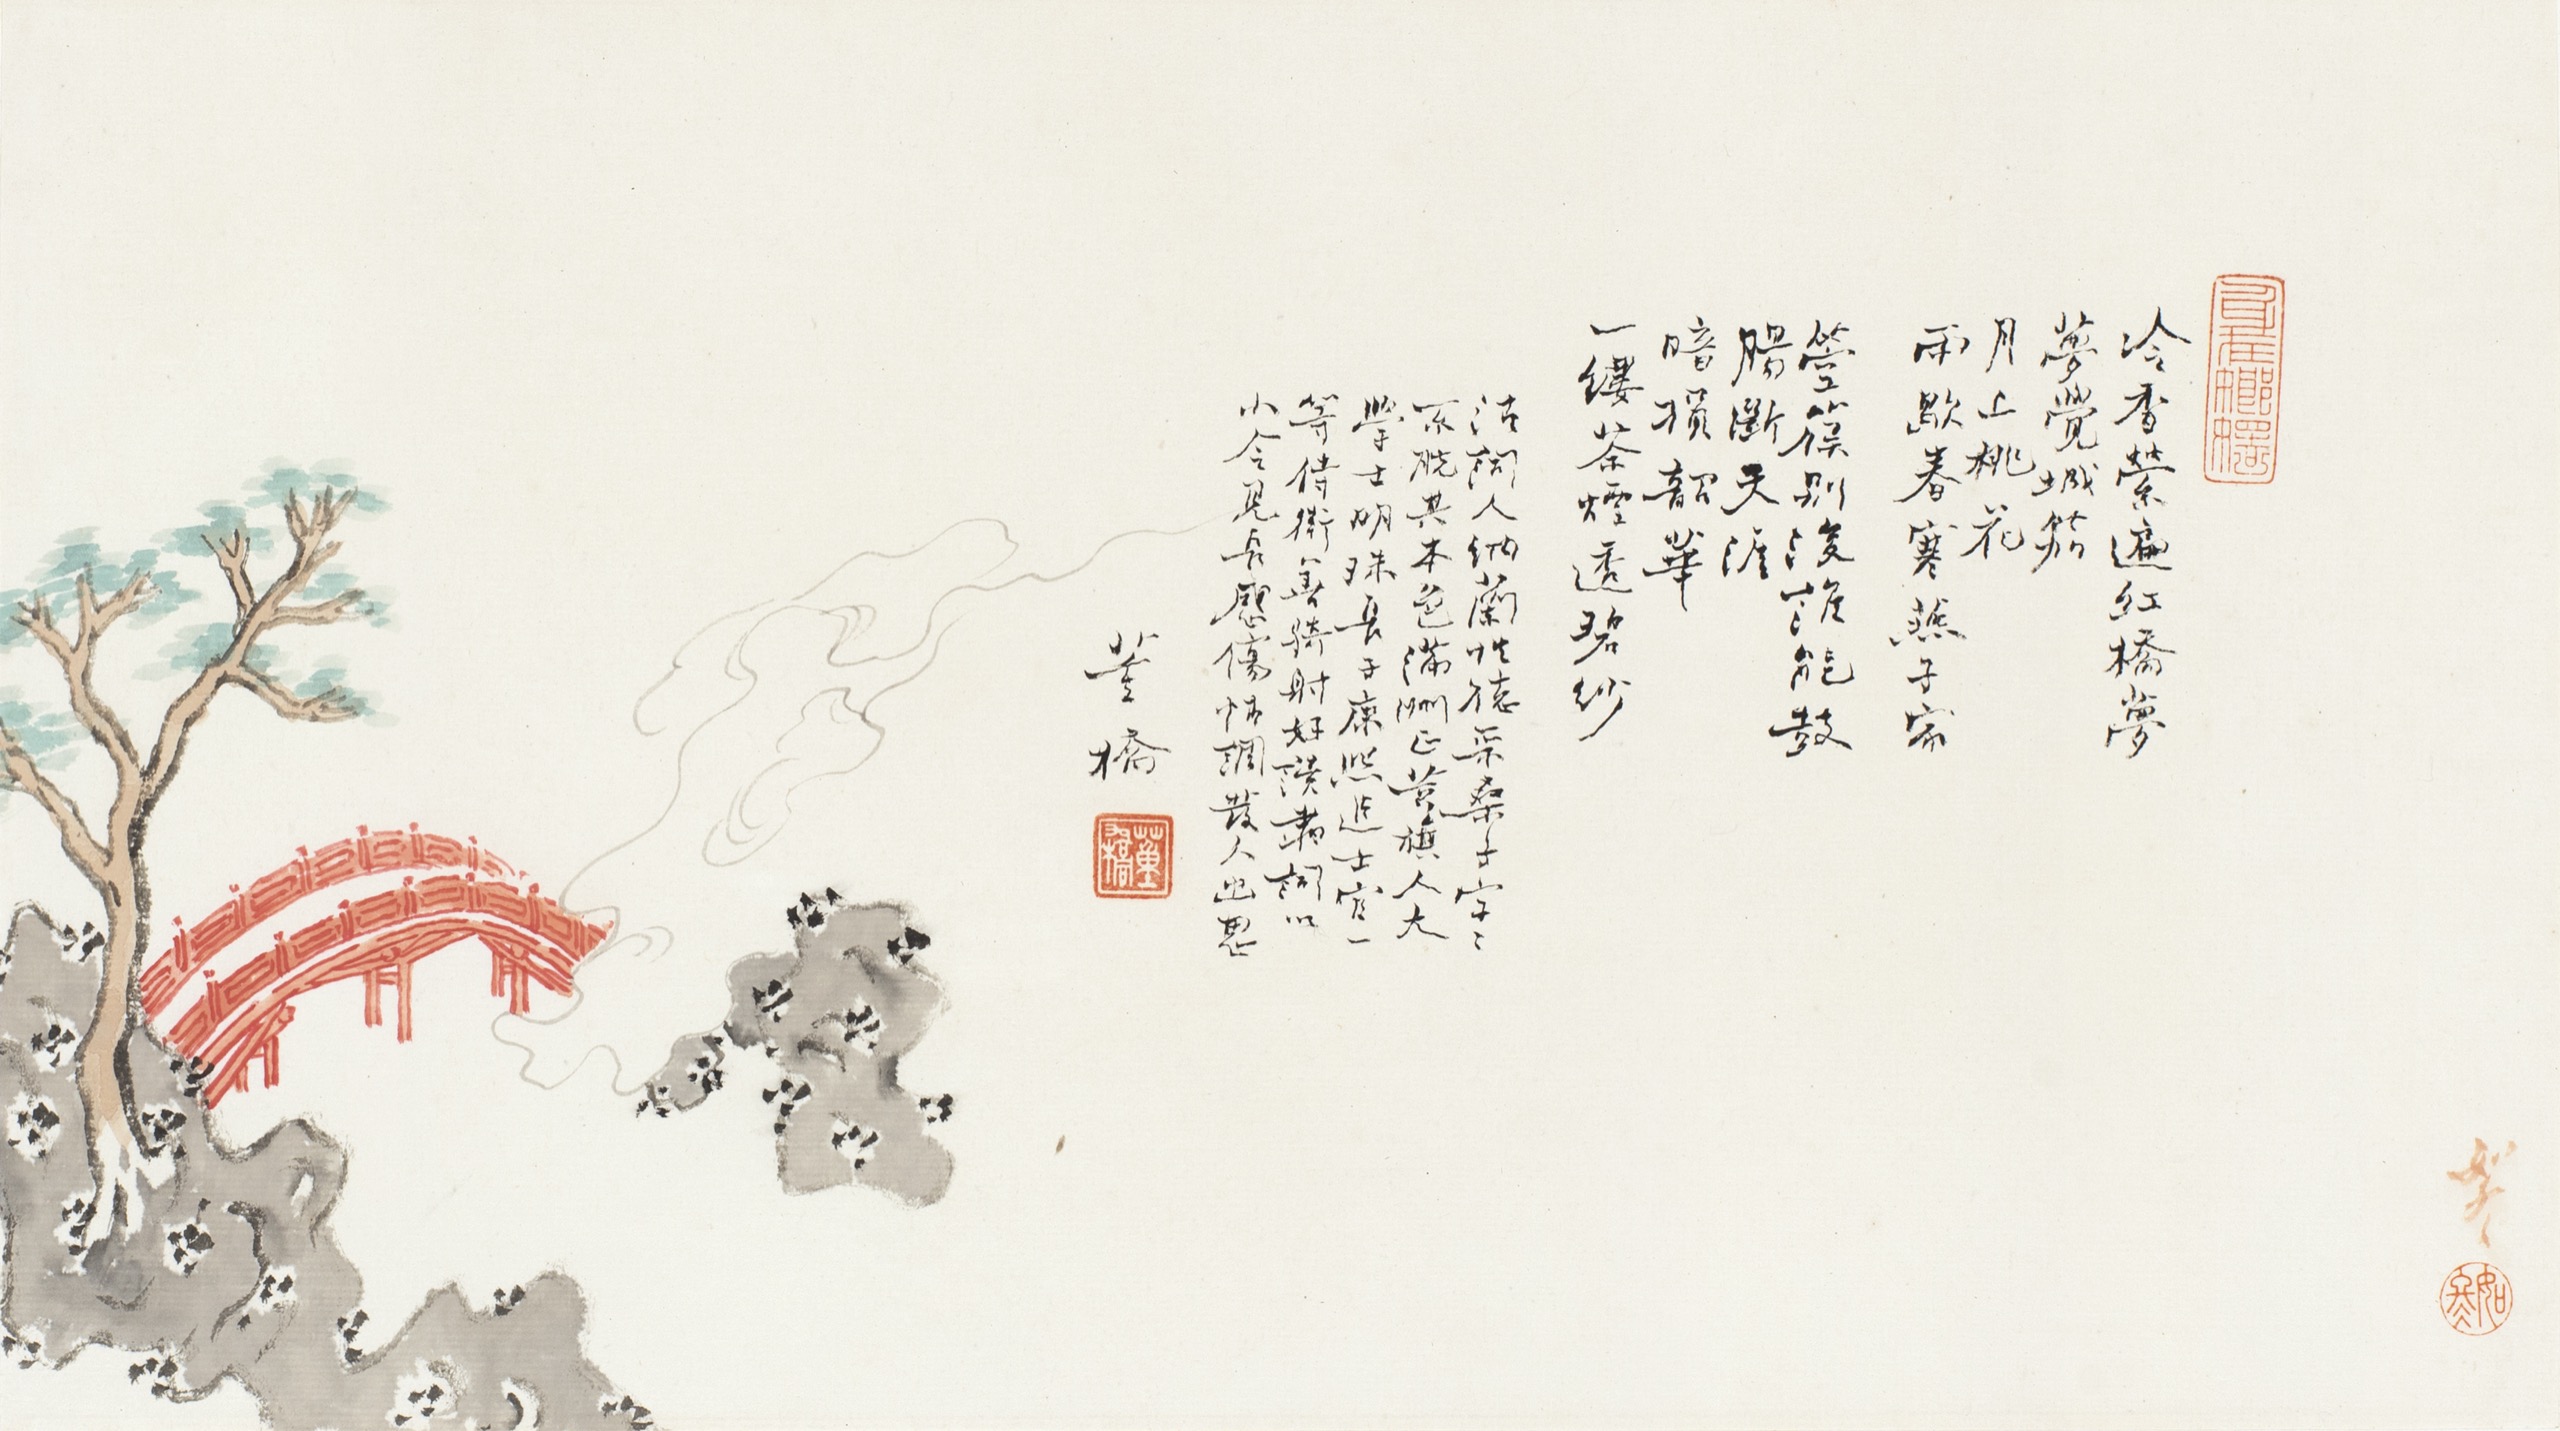 冷香縈遍紅橋夢
夢覺城笳
月上桃花
雨歇春寒燕子家
箜篌別後誰能鼓
腸斷天涯
暗損韶華
一縷茶煙透碧紗
清詞人納蘭性德采桑子字〻
不脱其本色滿洲正黃旗人大
學士明珠長子康熙進士官一
等侍衛善騎射好讀書詞以
小令見長感傷情調發人幽思
董橋
董橋